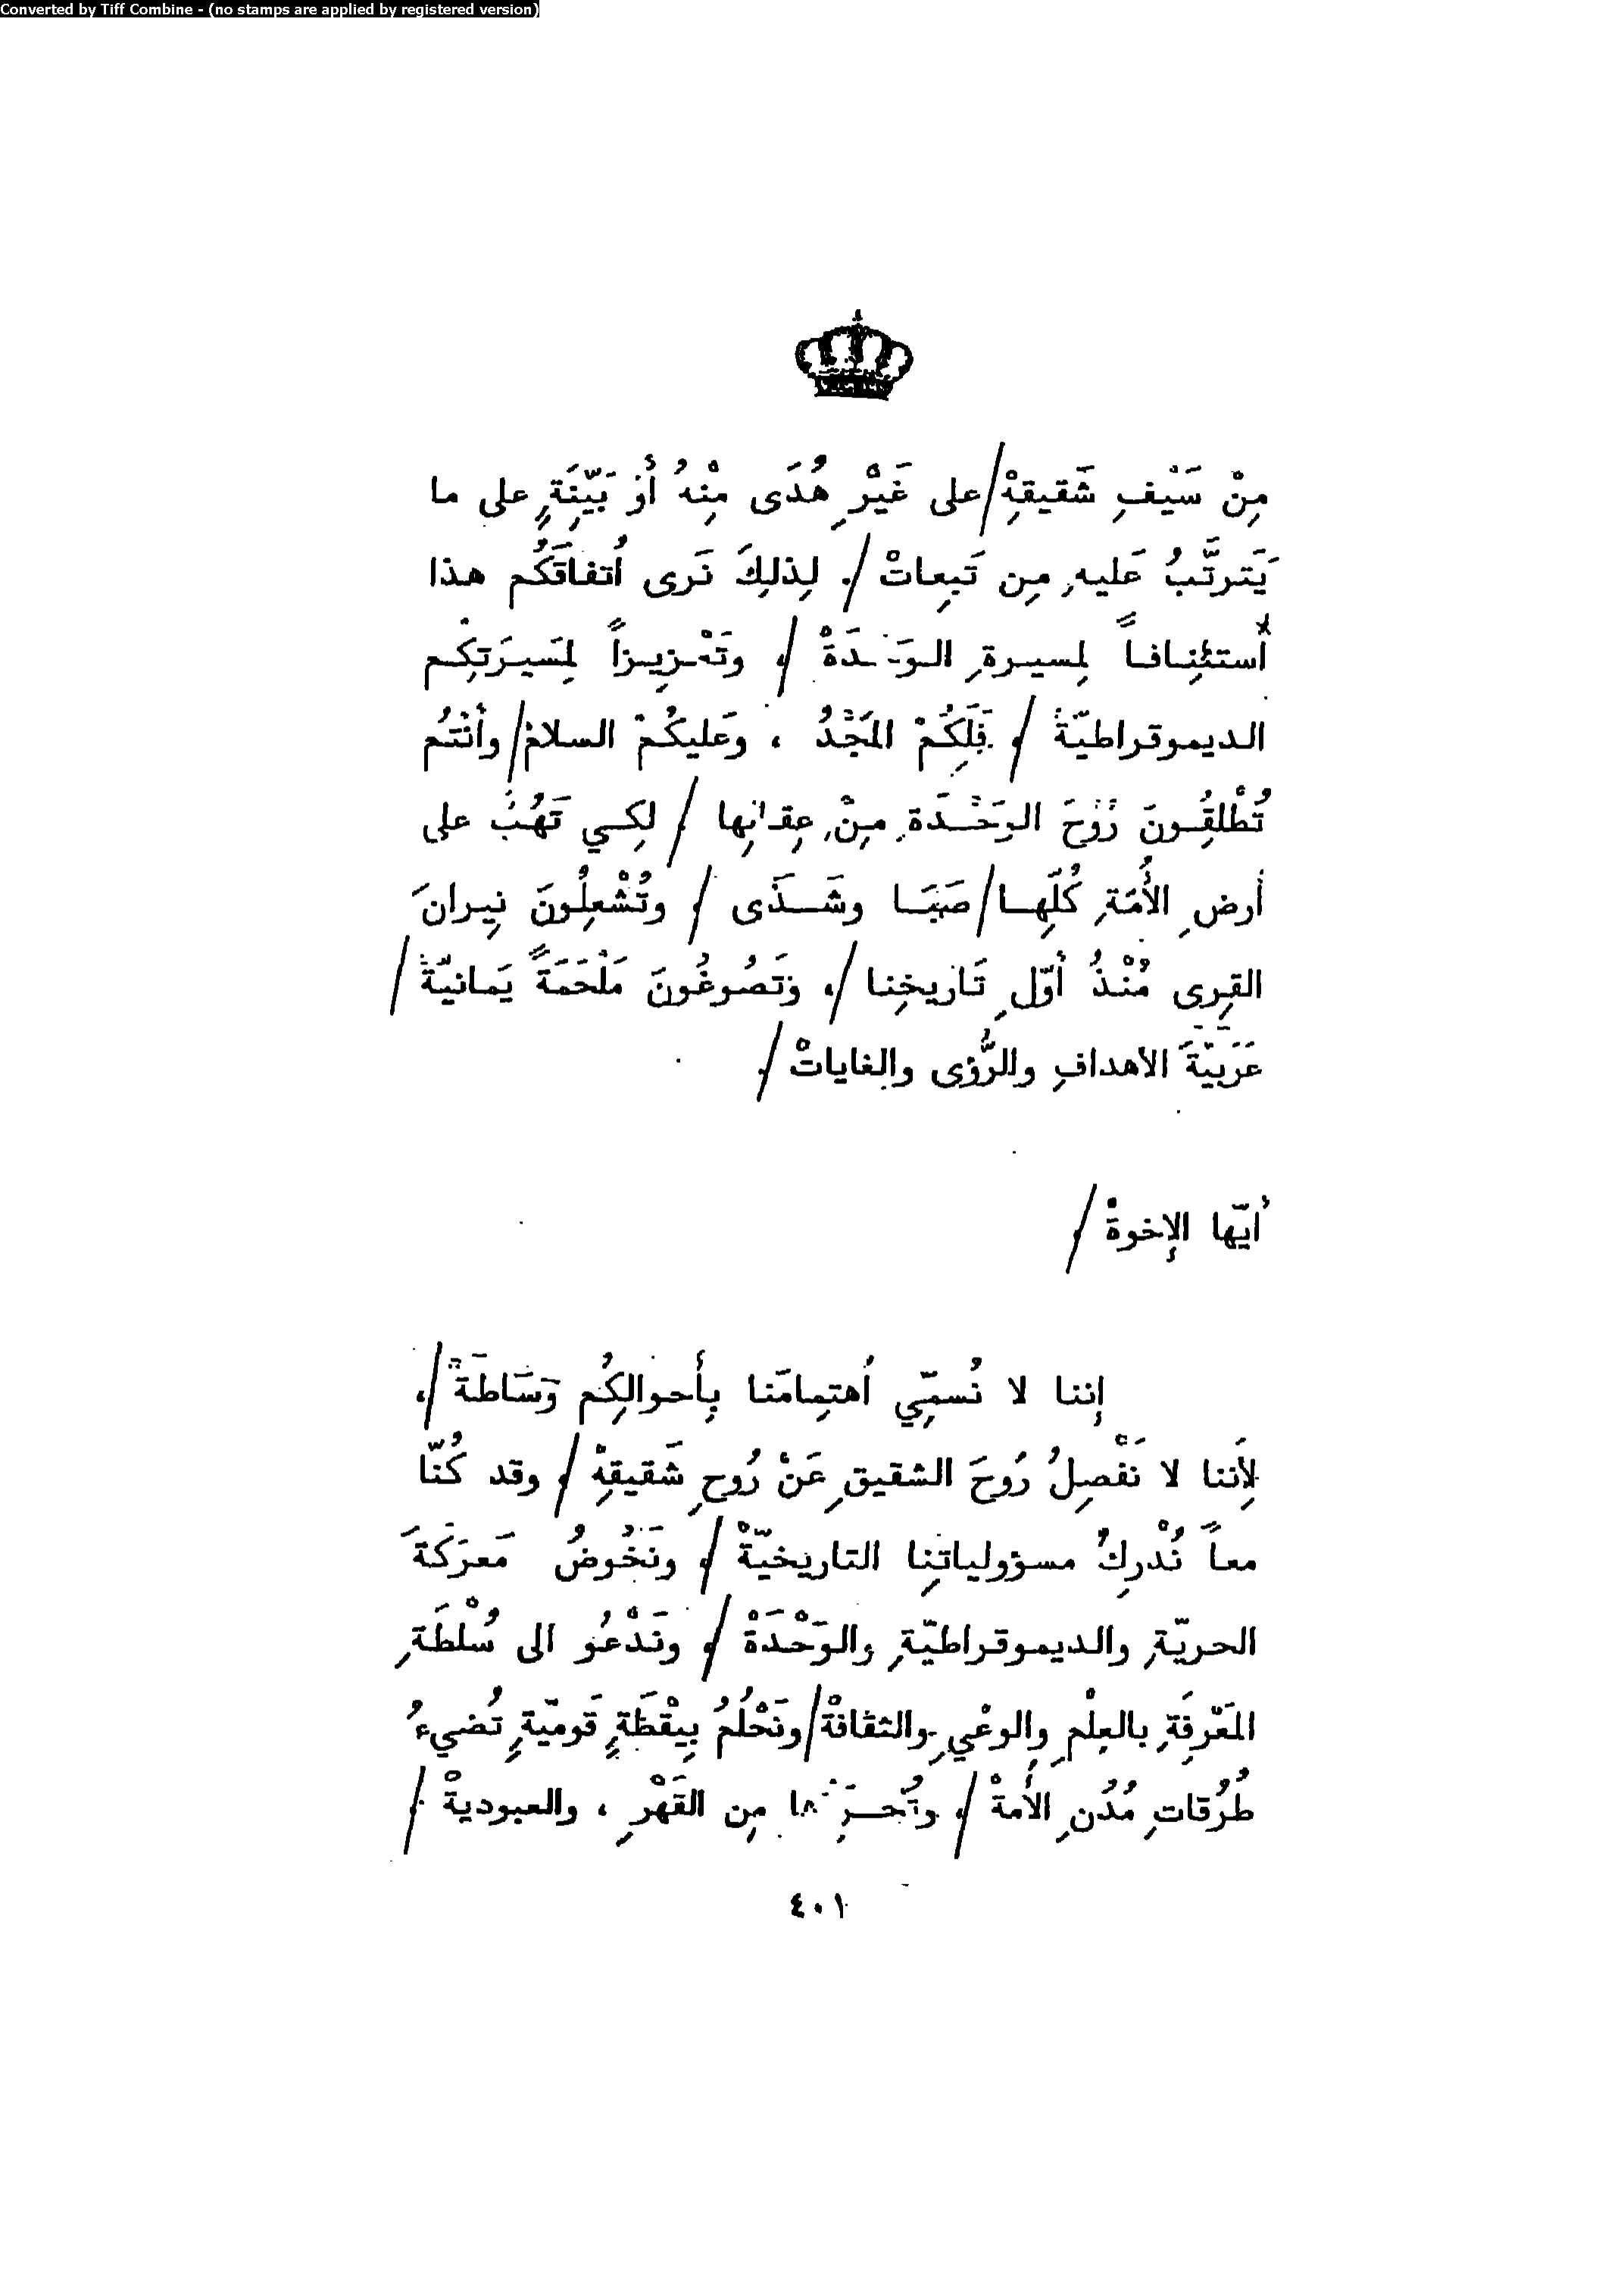 Converted by Tiff Combine - (no stamps are applied by registered version)
مِنْ سَيْفِ شَقيقِهْ/على غَيْرِ هُدَى مِنْهُ أوْ بَيّنَةٍ على ما
يَتَرتَّبُ عَليهِ مِن تَبِعاتْ/. لِذلِكَ نَرى اُتفاقَكُم هذا
اُستئنِافاً لِمسيرةِ الوَحْدَةْ/، وتَعْزيزاً لِمَسيرَتِكُم
الديموقراطيّةْ/، فَلَكُمْ المَجْدُ ، وعَليكُمْ السلامْ/وأنْتُم
تُطْلِقُونَ رُوْحَ الوَحْدَةِ مِنْ عِقالِها/، لِكي تَهُبَ على
أرضِ الأُمَةِ كُلّها/صَبَا وشَذَى/، وتُشْعِلُونَ نيرانَ
القِرى مُنْذُ أوّلِ تَاريخِنا/، وَتَصُوغُونَ مَلْحَمَةً يَمانيّةْ/
عَرَبيّةَ الأهدافِ والرُّؤى والغاياتْ/.
أيّها الإخوةْ/،
إننا لا نُسمّي اُهتِمامَنا بِأحوالِكُم وَسَاطَةْ/،
لِأَننا لا نَفْصِلُ رُوحَ الشقيقِ عَنْ رُوحِ شَقيقِهْ/، وقد كُنّا
معاً نُدْرِكُ مسؤولياتِنا التاريخيّةْ/، ونَخُوضُ مَعرَكَةَ
الحريّةِ والديموقراطيّةِ والوَحْدَةْ/، ونَدْعُو الى سُلْطَةِ
المَعْرِفَةِ بالعِلْمِ والوعْيِ والثقافةْ/ونَحْلُمُ بِيقْظَةٍ قَوميّةٍ تُضيءُ
طُرُقاتِ مُدُنِ الأمةْ/، وتُحرِّرَها مِن القَهْرِ ، والعبوديةْ/،
٤٠١